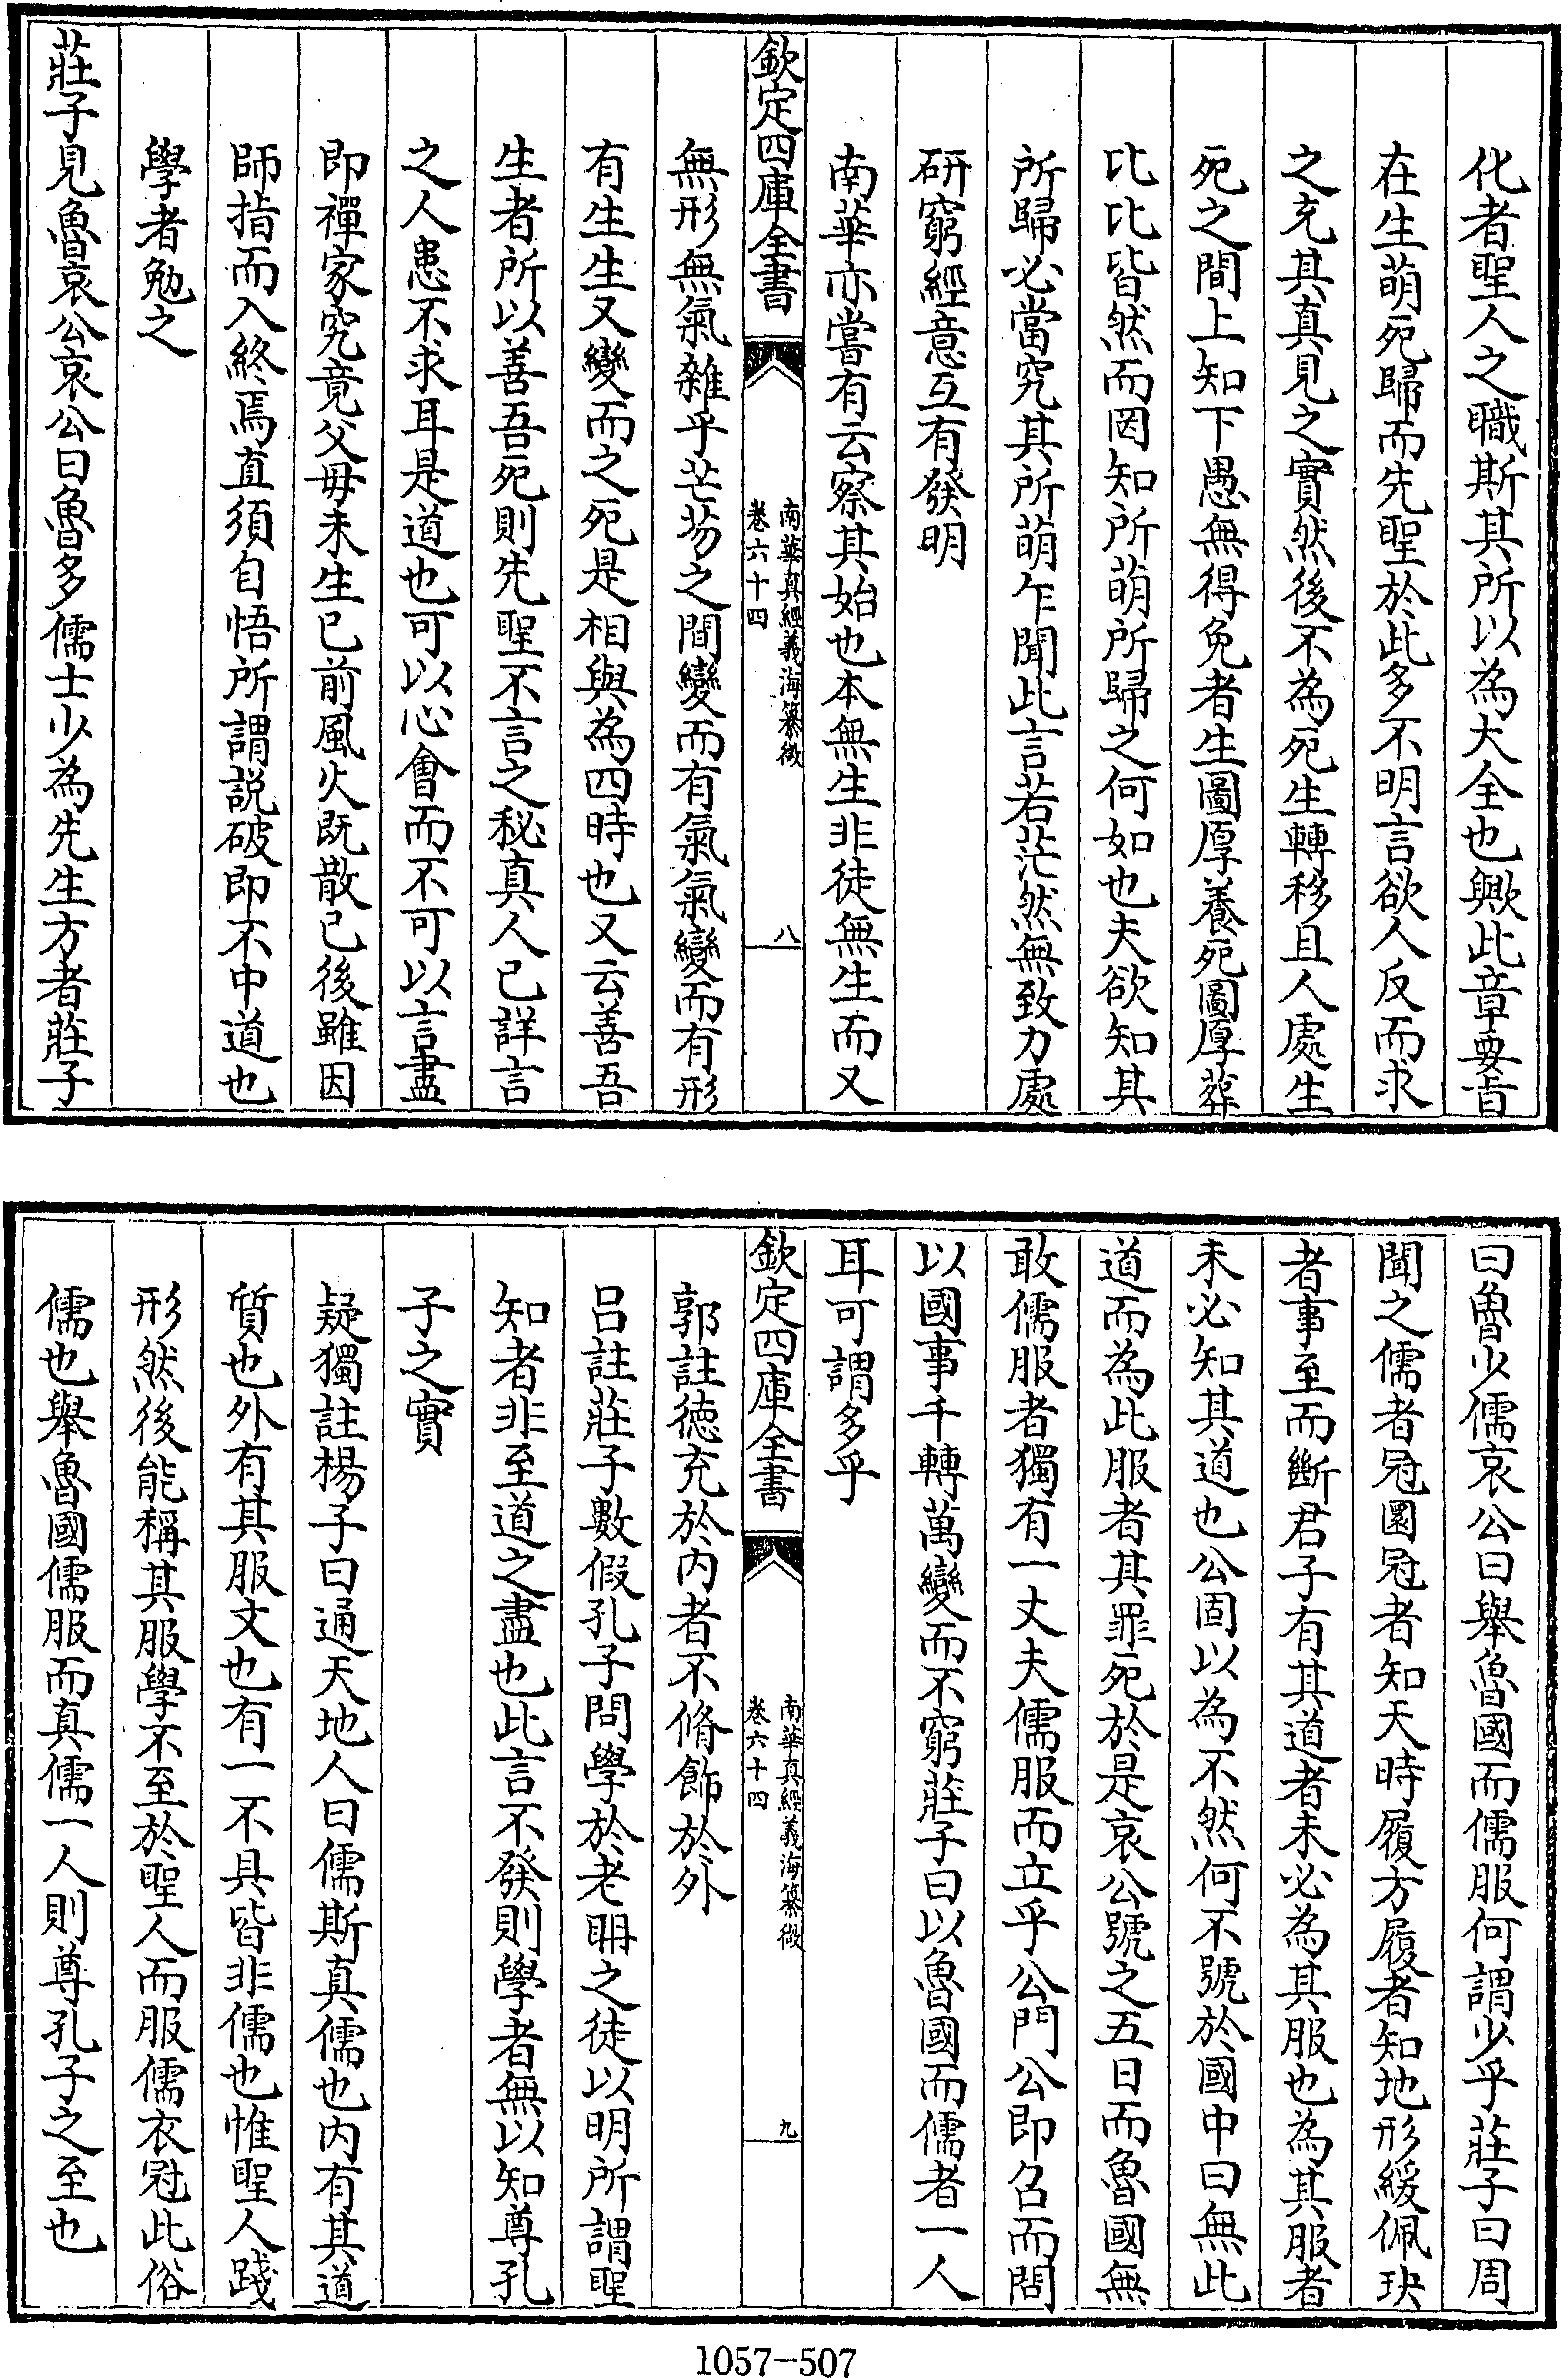 化者聖人之職斯其所以為大全也歟此章要旨
在生萌死歸而先聖於此多不明言欲人反而求
之充其真見之實然後不為死生轉移且人處生
死之間上知下愚無得免者生圖厚養死圖厚葬
比比皆然而罔知所萌所歸之何如也夫欲知其
所歸必當究其所萌乍聞此言若茫然無致力處
研窮經意互有發明
南華亦嘗有云察其始也本無生非徒無生而又
欽定四庫全書
南華真經義海纂微
卷六十四
八
無形無氣雜乎芒芴之間變而有氣氣變而有形
有生生又變而之死是相與為四時也又云善吾
生者所以善吾死則先聖不言之秘真人已詳言
之人患不求耳是道也可以心會而不可以言盡
即禪家究竟父母未生已前風火既散已後雖因
師指而入終焉直須自悟所謂説破即不中道也
學者勉之
莊子見魯哀公哀公曰魯多儒士少為先生方者莊子
曰魯少儒哀公曰舉魯國而儒服何謂少乎莊子曰周
聞之儒者冠圜冠者知天時履方履者知地形緩佩玦
者事至而斷君子有其道者未必為其服也為其服者
未必知其道也公固以為不然何不號於國中曰無此
道而為此服者其罪死於是哀公號之五日而魯國無
敢儒服者獨有一丈夫儒服而立乎公門公即召而問
以國事千轉萬變而不窮莊子曰以魯國而儒者一人
耳可謂多乎
欽定四庫全書
南華真經義海纂微
卷六十四
九
郭註徳充於内者不脩飾於外
吕註莊子數假孔子問學於老聃之徒以明所謂聖
知者非至道之盡也此言不發則學者無以知尊孔
子之實
疑獨註楊子曰通天地人曰儒斯真儒也内有其道
質也外有其服文也有一不具皆非儒也惟聖人踐
形然後能稱其服學不至於聖人而服儒衣冠此俗
儒也舉魯國儒服而真儒一人則尊孔子之至也
1057-507